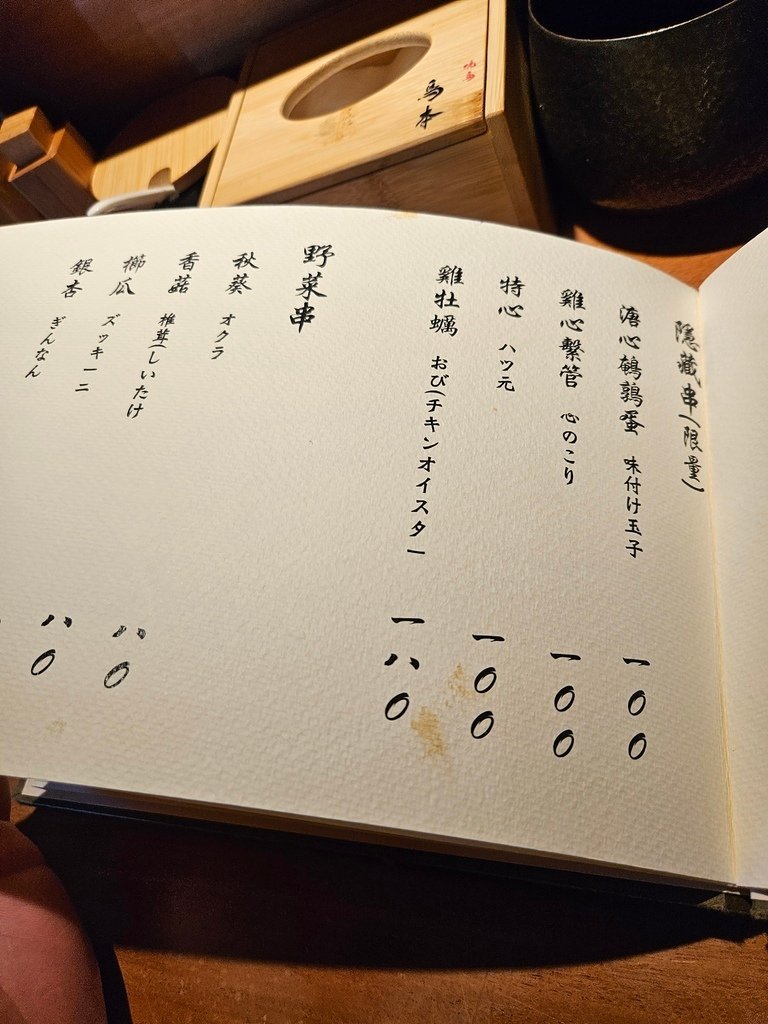 隱藏串(限量)
溏心鵪鶉蛋 味付け玉子 一〇〇
雞心繫管 心のこり 一〇〇
特心 ハツ元 一〇〇
雞牡蠣 おび(チキンオイスター 一八〇
野菜串
秋葵 オクラ 八〇
香菇 椎茸(しいたけ 八〇
櫛瓜 ズッキーニ
銀杏 ぎんなん